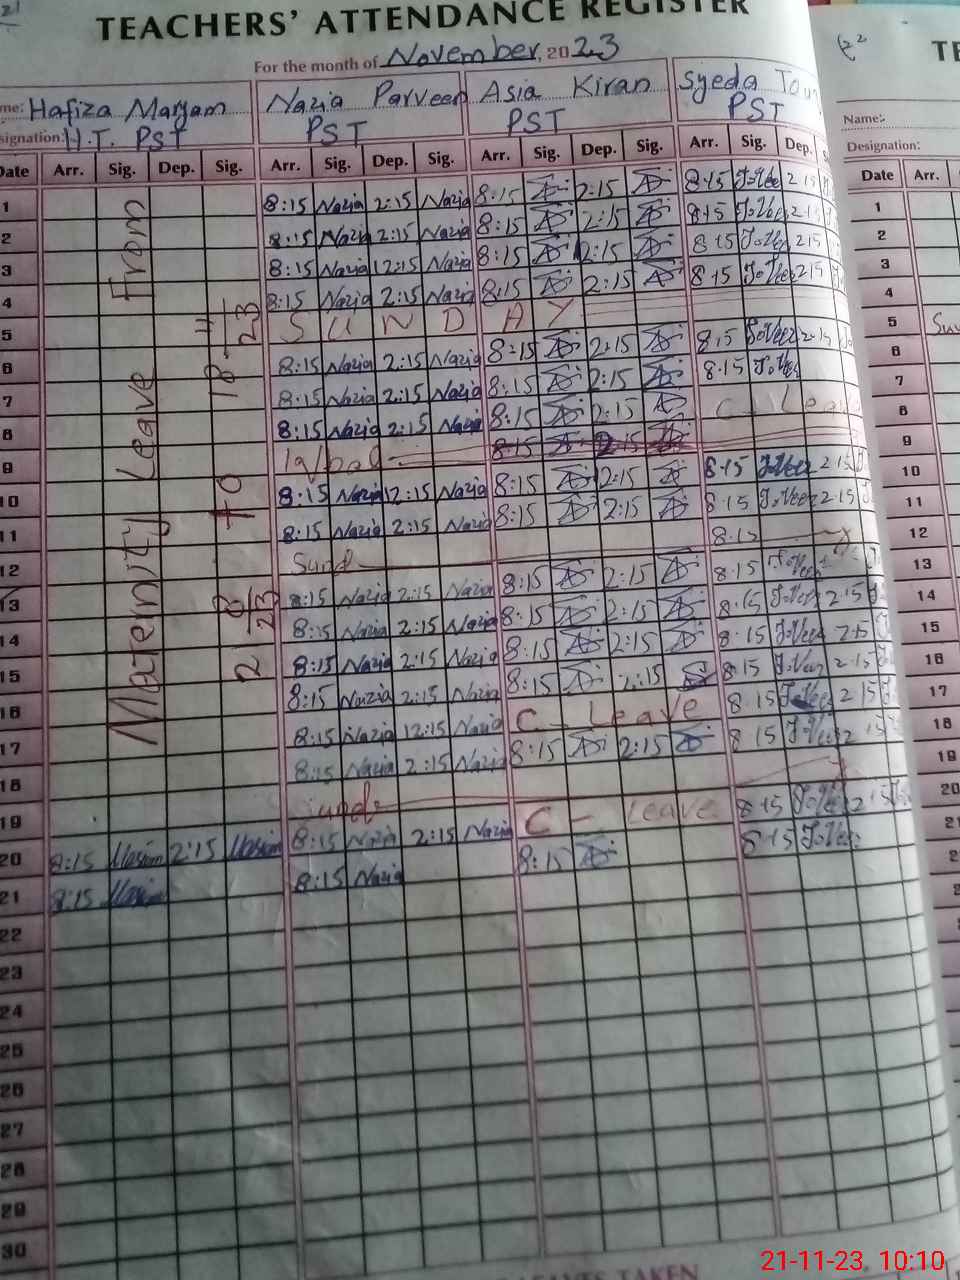 TEACHERS' ATTENDANCE REGISTER
For the month of November, 2023
Hafiza Maryam Nazia Parveen Asia Kiran Syeda
H.T. PST PST PST PST
Date Arr. Sig. Dep. Sig. Arr. Sig. Dep. Sig. Arr. Sig. Dep. Sig. Arr. Sig. Dep.
Maternity Leave From
21 8/23 to 18-11/23
1 8:15 Nazia 2:15 Nazia 8:15 2:15 8:15 2:15
2 8:15 Nazia 2:15 Nazia 8:15 2:15 8:15 2:15
3 8:15 Nazia 12:15 Nazia 8:15 2:15 8:15 2:15
4 8:15 Nazia 2:15 Nazia 8:15 2:15 8:15 2:15
5 SUNDAY
6 8:15 Nazia 2:15 Nazia 8:15 2:15 8:15 2:15
7 8:15 Nazia 2:15 Nazia 8:15 2:15 8:15
8 8:15 Nazia 2:15 Nazia 8:15 2:15 C-Lea
9 Iqbal 8:15 2:15
10 8:15 Nazia 12:15 Nazia 8:15 2:15 8:15 2:15
11 8:15 Nazia 2:15 Nazia 8:15 2:15 8:15 2:15
12 Sund 8:15
13 8:15 Nazia 2:15 Nazia 8:15 2:15 8:15
14 8:15 Nazia 2:15 Nazia 8:15 2:15 8:15 2:15
15 8:15 Nazia 2:15 Nazia 8:15 2:15 8:15 2:15
16 8:15 Nazia 2:15 Nazia 8:15 2:15 8:15 2:15
17 8:15 Nazia 12:15 Nazia C-Leave 8:15 2:15
18 8:15 Nazia 2:15 Nazia 8:15 2:15 8:15
19 Sund
20 8:15 2:15 8:15 Nazia 2:15 Nazia C-Leave 8:15 2:15
21 8:15 8:15 Nazia 8:15 8:15
22
23
24
25
26
27
28
29
30
TAKEN
Name:-
Designation:
Date Arr.
1
2
3
4
5
6
7
8
9
10
11
12
13
14
15
16
17
18
19
20
21
21-11-23, 10:10